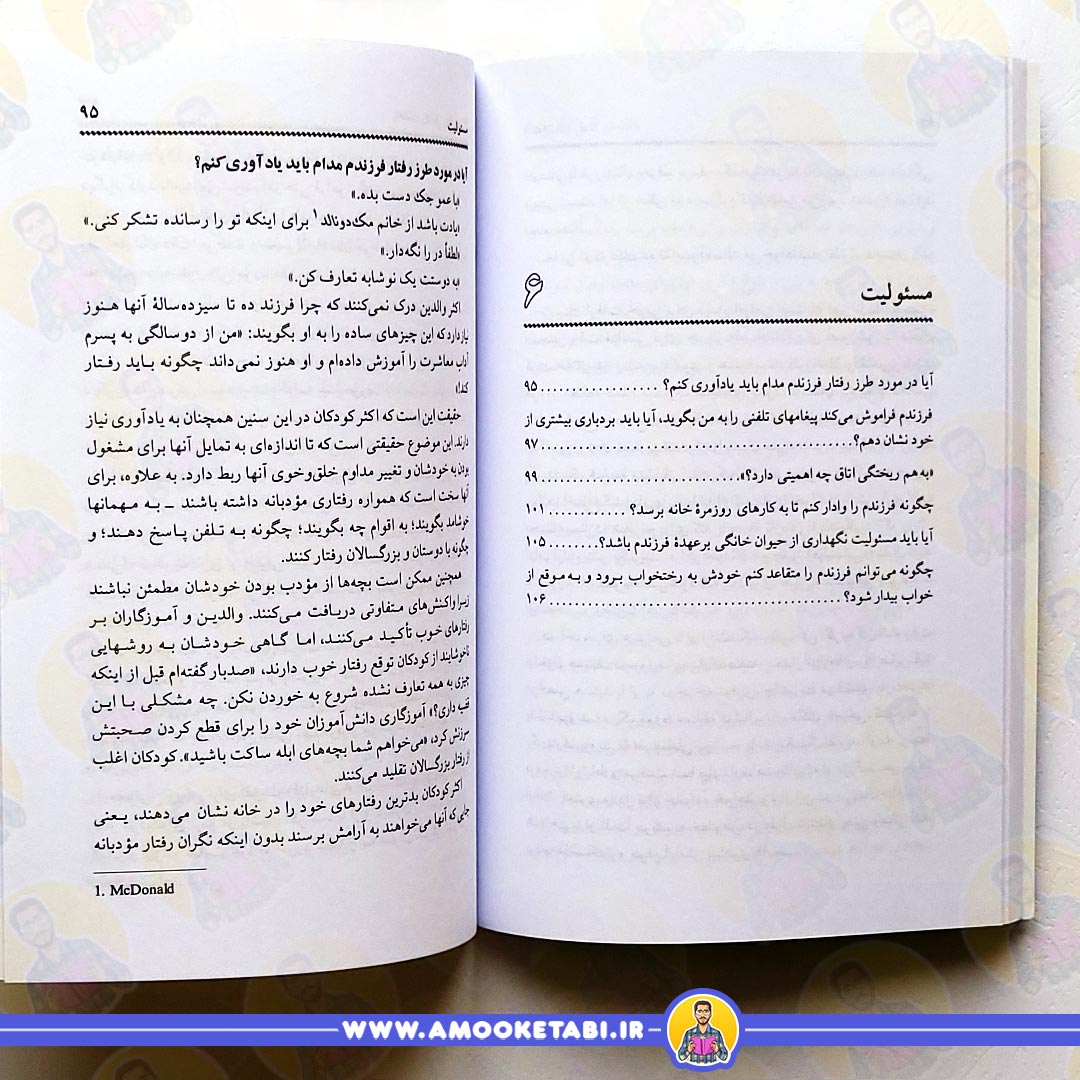 مسئولیت
۶
آیا در مورد طرز رفتار فرزندم مدام باید یادآوری کنم؟ .................. ۹۵
فرزندم فراموش می‌کند پیغامهای تلفنی را به من بگوید، آیا باید بردباری بیشتری از
خود نشان دهم؟ ................................................ ۹۷
«به هم ریختگی اتاق چه اهمیتی دارد؟» .............................. ۹۹
چگونه فرزندم را وادار کنم تا به کارهای روزمرهٔ خانه برسد؟ ............ ۱۰۱
آیا باید مسئولیت نگهداری از حیوان خانگی بر عهدهٔ فرزندم باشد؟ ........ ۱۰۵
چگونه می‌توانم فرزندم را متقاعد کنم خودش به رختخواب برود و به موقع از
خواب بیدار شود؟ ............................................. ۱۰۶
مسئولیت ۹۵
آیا در مورد طرز رفتار فرزندم مدام باید یادآوری کنم؟
«با عمو جک دست بده.»
«یادت باشد از خانم مک‌دونالد۱ برای اینکه تو را رسانده تشکر کنی.»
«لطفاً در را نگه‌دار.»
«به دوستت یک نوشابه تعارف کن.»
اکثر والدین درک نمی‌کنند که چرا فرزند ده تا سیزده‌سالهٔ آنها هنوز
نیاز دارد که این چیزهای ساده را به او بگویند: «من از دو سالگی به پسرم
آداب معاشرت را آموزش داده‌ام و او هنوز نمی‌داند چگونه باید رفتار
کند!»
حقیقت این است که اکثر کودکان در این سنین همچنان به یادآوری نیاز
دارند. این موضوع حقیقتی است که تا اندازه‌ای به تمایل آنها برای مشغول
بودن به خودشان و تغییر مداوم خلق‌وخوی آنها ربط دارد. به علاوه، برای
آنها سخت است که همواره رفتاری مؤدبانه داشته باشند ـ به مهمانها
خوشامد بگویند؛ به اقوام چه بگویند؛ چگونه به تلفن پاسخ دهند؛ و
چگونه با دوستان و بزرگسالان رفتار کنند.
همچنین ممکن است بچه‌ها از مؤدب بودن خودشان مطمئن نباشند
زیرا واکنش‌های متفاوتی دریافت می‌کنند. والدین و آموزگاران بر
رفتارهای خوب تأکید می‌کنند، اما گاهی خودشان به روشهایی
ناخوشایند از کودکان توقع رفتار خوب دارند، «صدبار گفته‌ام قبل از اینکه
چیزی به همه تعارف نشده شروع به خوردن نکن. چه مشکلی با این
قضیه داری؟» آموزگاری دانش‌آموزان خود را برای قطع کردن صحبتش
سرزنش کرد، «می‌خواهم شما بچه‌های ابله ساکت باشید». کودکان اغلب
از رفتار بزرگسالان تقلید می‌کنند.
اکثر کودکان بدترین رفتارهای خود را در خانه نشان می‌دهند، یعنی
جایی که آنها می‌خواهند به آرامش برسند بدون اینکه نگران رفتار مؤدبانه
1. McDonald
WWW.AMOOKETABI.IR